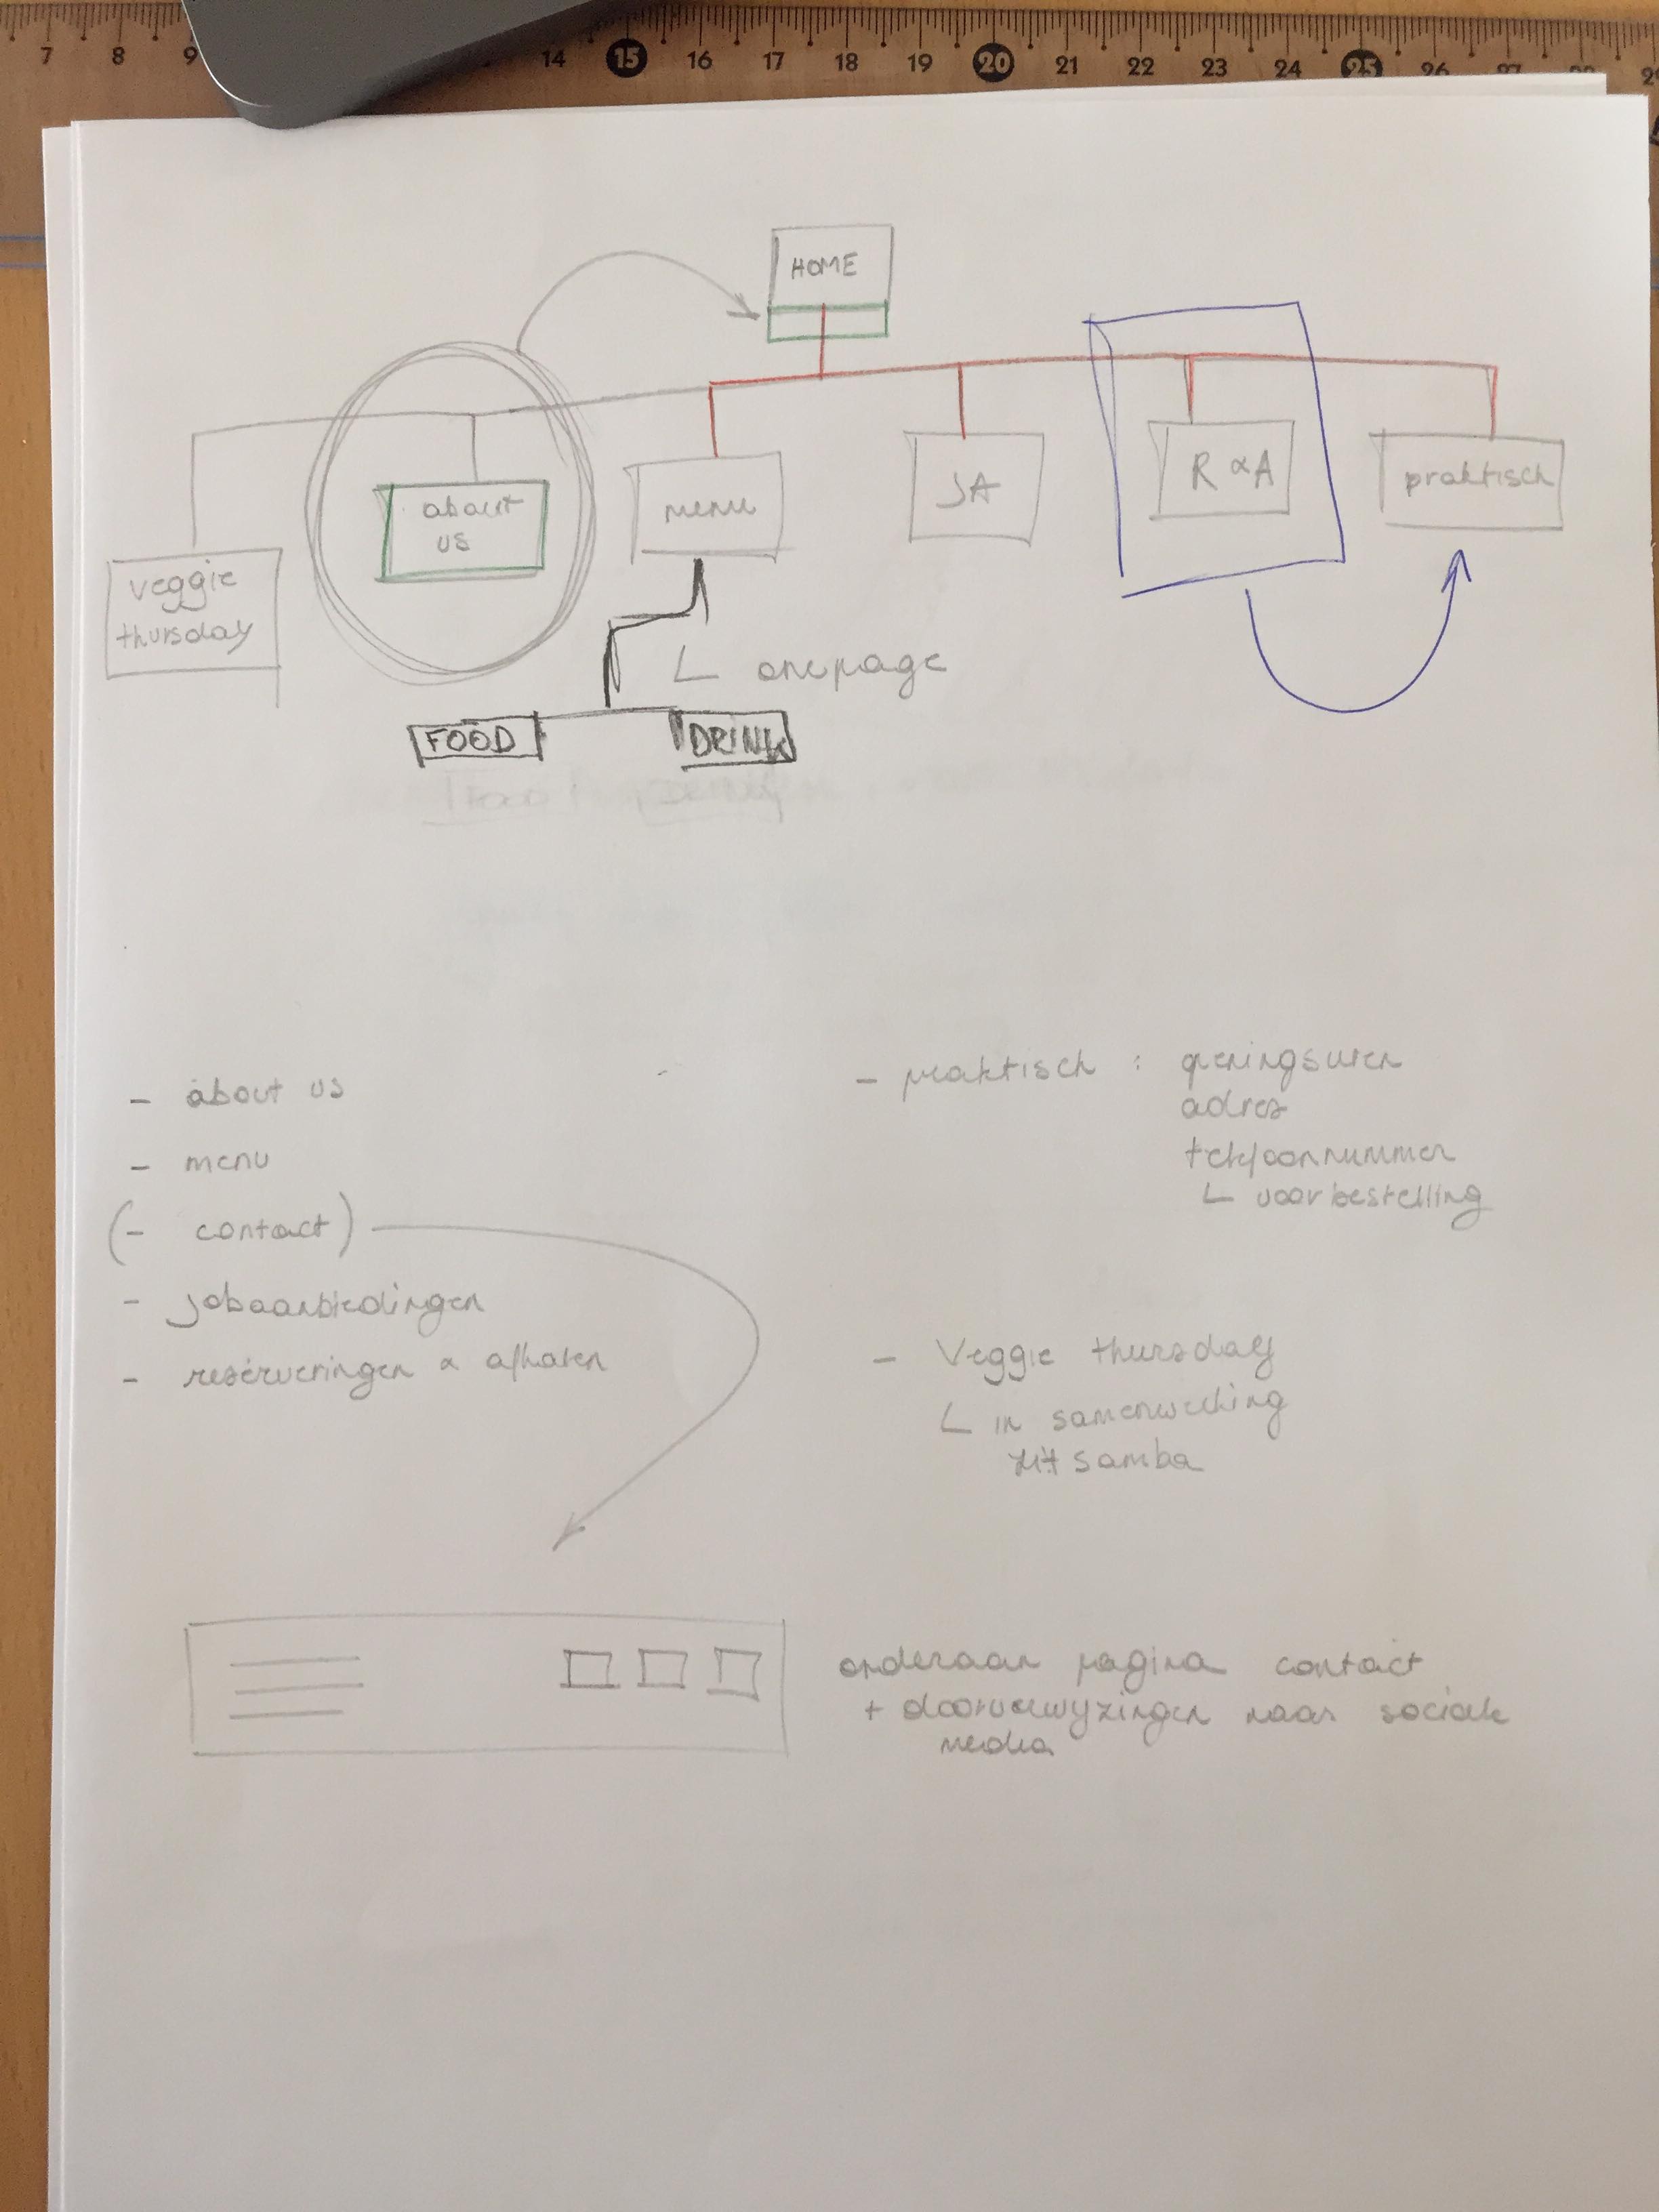 7 8 9 14 15 16 17 18 19 20 21 22 23 24 25 26 27 28
HOME
about
us
menu
JA
R & A
praktisch
veggie
thursday
onepage
FOOD
DRINK
- about us
- menu
(- contact)
- jobaanbiedingen
- reserveringen & afhalen
- praktisch : openingsuren
adres
telefoonnummer
voorbestelling
- Veggie thursday
in samenwerking
samba
onderaan pagina contact
+ doorverwijzingen naar sociale
media